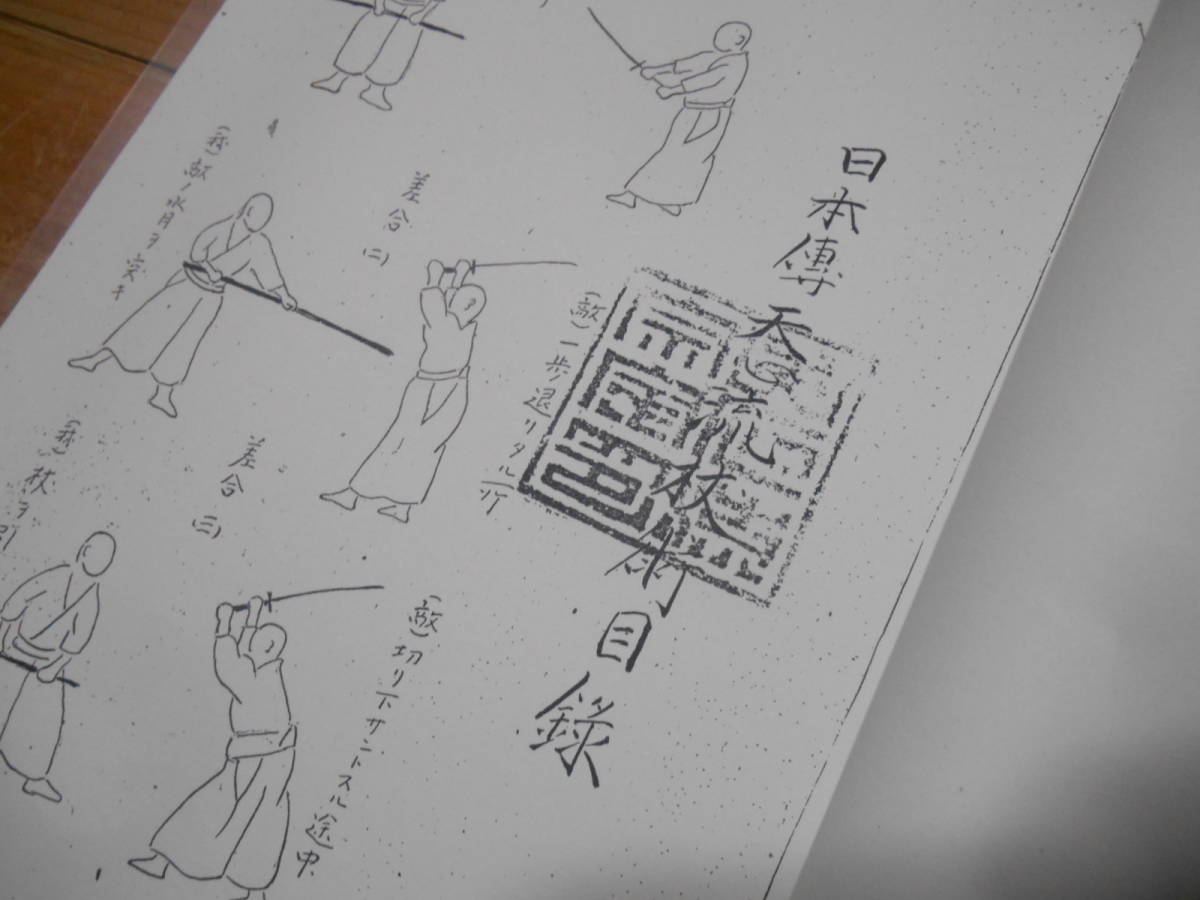 日本傳天心流杖術目録
(敵)一歩退リタル所
差合(二)
(我)敵ノ水月ヲ突キ
(敵)切リ下サントスル途中
差合(三)
(我)杖ヲ引